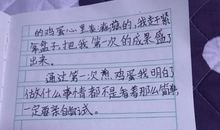 的鸡蛋心里美滋滋的,我赶紧
拿盘子,把我第一次的成果盛了
出来。
通过第一次煎鸡蛋我明白了
做什么事情都不是看着那么简单
一定要亲自尝试。